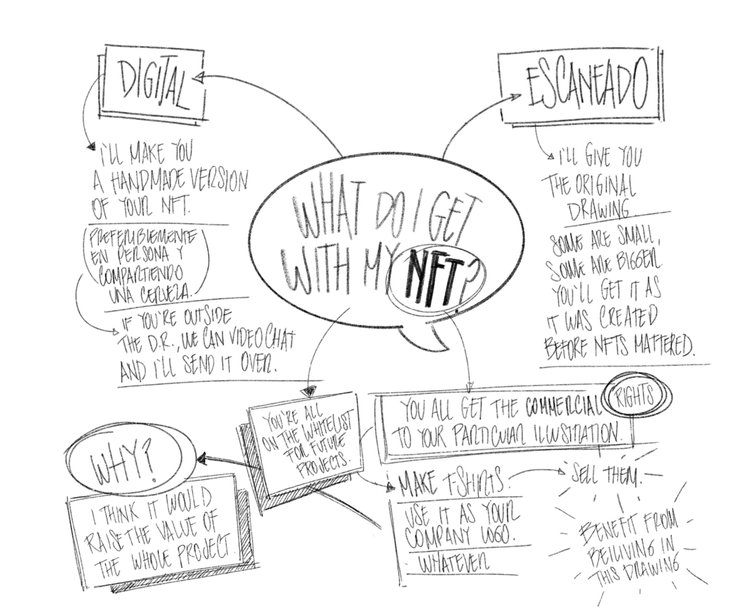 DIGITAL
I'LL MAKE YOU
A HANDMADE VERSION
OF YOUR NFT.
(PREFERIBLEMENTE
EN PERSONA Y
COMPARTIENDO
UNA CERVEZA.)
IF YOU'RE OUTSIDE
THE D.R., WE CAN VIDEO CHAT
AND I'LL SEND IT OVER.
WHAT DO I GET
WITH MY NFT?
ESCANEADO
I'LL GIVE YOU
THE ORIGINAL
DRAWING.
SOME ARE SMALL,
SOME ARE BIGGER
YOU'LL GET IT AS
IT WAS CREATED
BEFORE NFTS MATTERED.
YOU'RE ALL
ON THE WHITELIST
FOR FUTURE
PROJECTS.
WHY?
I THINK IT WOULD
RAISE THE VALUE OF
THE WHOLE PROJECT
YOU ALL GET THE COMMERCIAL RIGHTS
TO YOUR PARTICULAR ILLUSTRATION.
MAKE T-SHIRTS
USE IT AS YOUR
COMPANY LOGO.
WHATEVER
SELL THEM.
BENEFIT FROM
BEILIVING IN
THIS DRAWING